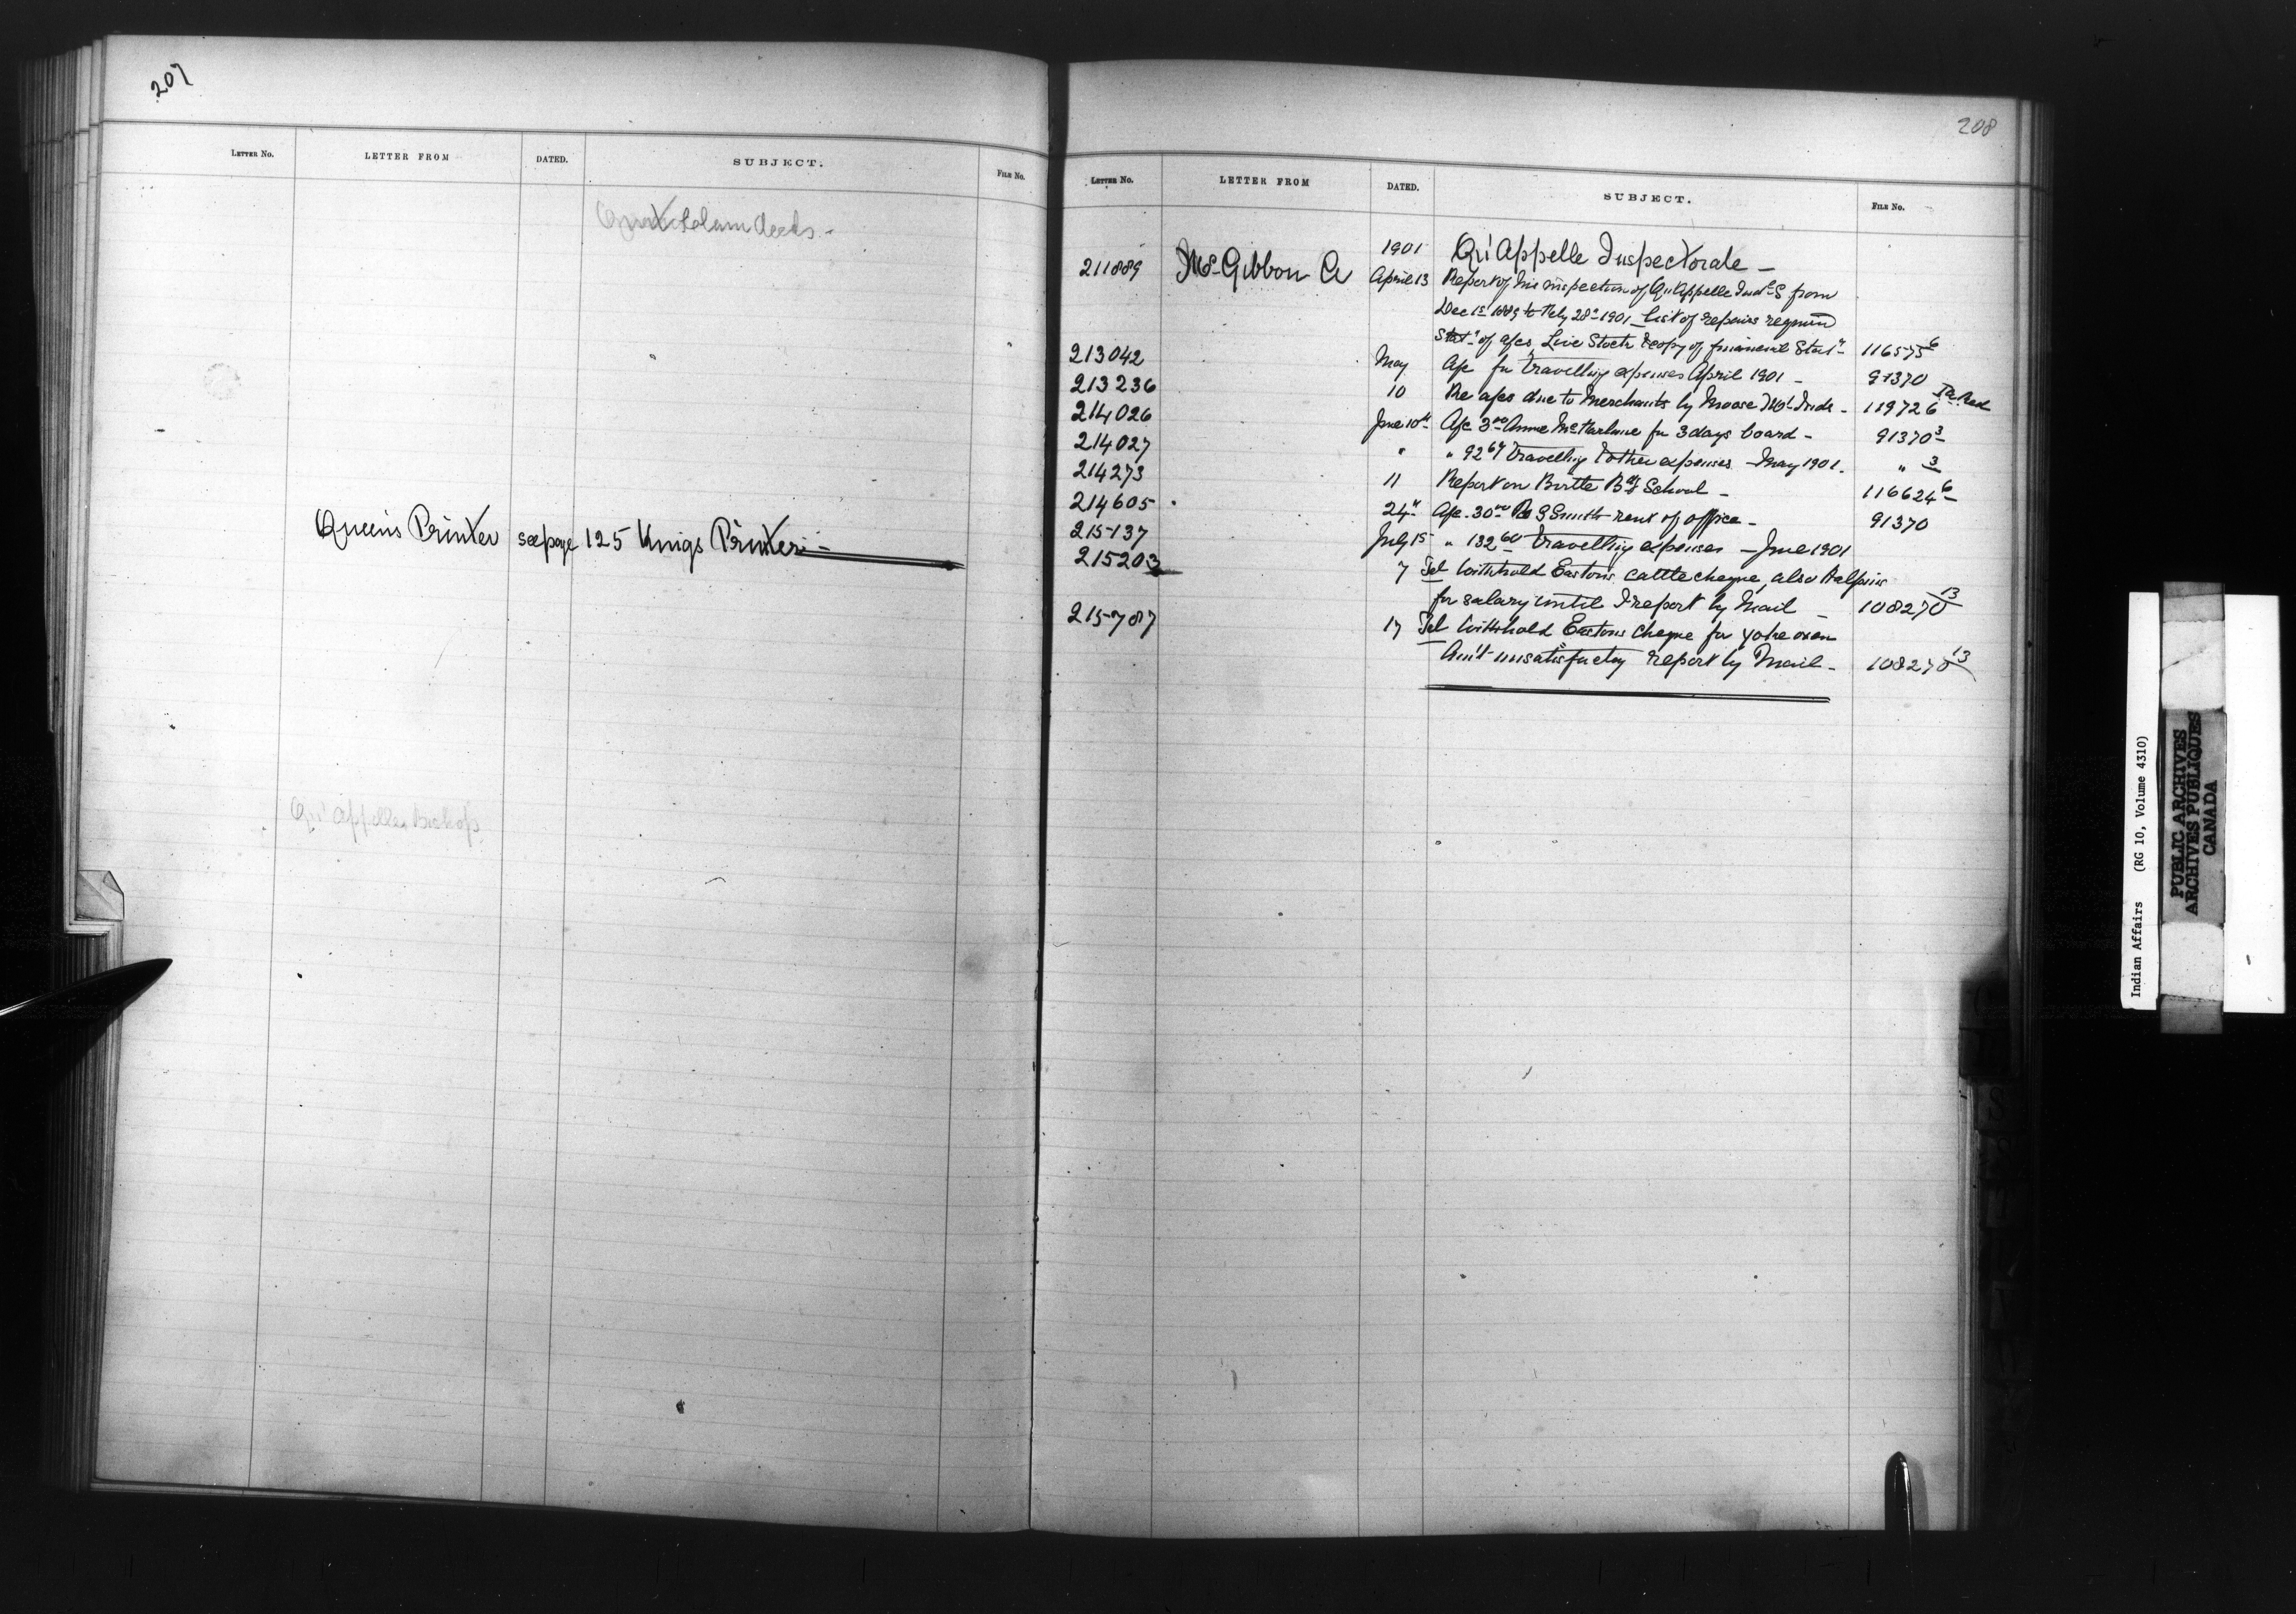 207
LETTER No. LETTER FROM DATED. SUBJECT. FILE No.
Quit Claim Deeds -
Queens Printer see page 125 Kings Printer -
Qu'Appelle Bishop
208
LETTER No. LETTER FROM DATED. SUBJECT. FILE No.
1901 Qu'Appelle Inspectorate -
211889 McGibbon A April 13 Report of his inspection of Qu'Appelle Indl S from
Dec 1st 1889 to Feby 28th 1901 - List of repairs required
Statt of a/cs, Live Stock & copy of financial Statt - 116575-6
213042 May A/c for travelling expenses April 1901 - 91370
213236 10 Re a/cs due to Merchants by Moose Mt Inds - 119726
214026 June 10th A/c 3.00 Annie McFarlane for 3 days board - 91370-3
214027 " " 92.67 Travelling & other expenses - May 1901. " 3
214273 11 Report on Birtle Bdg School - 116624-6
214605 24th A/c 30.00 S Smith rent of office - 91370
215137 July 15 " 132.60 travelling expenses - June 1901
215203 7 Tel Withhold Eastons cattle cheque, also
for salary until I report by Mail - 108270-13
215787 17 Tel Withhold Eastons cheque for yoke oxen
Am't unsatisfactory report by Mail - 108270-13
Indian Affairs (RG 10, Volume 4310)
PUBLIC ARCHIVES
ARCHIVES PUBLIQUES
CANADA